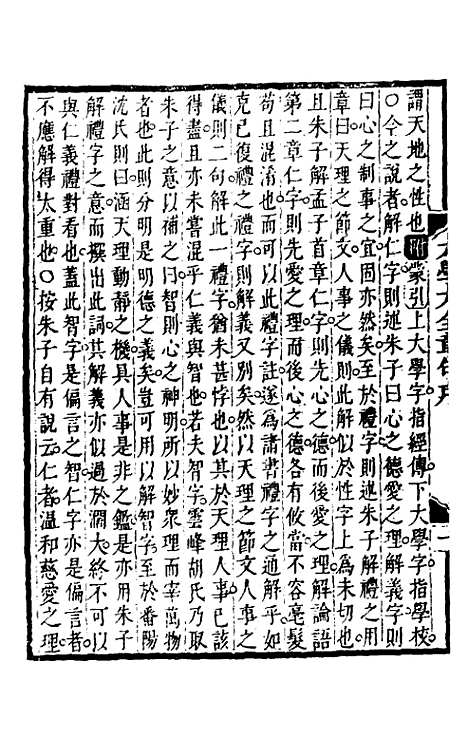 謂天地之性也附蒙引上大學字指經傳下大學字指學校
○今之說者解仁字則述朱子曰心之德愛之理解義字則
曰心之制事之宜固亦然矣至於禮字則述朱子解禮之用
章曰天理之節文人事之儀則此解似於性字上爲未切也
且朱子解孟子首章仁字則先心之德而後愛之理解論語
第二章仁字則先愛之理而後心之德各有攸當不容亳髮
苟且混淆也而可以此禮字註遂爲諸書禮字之通解乎如
克己復禮之禮字則解義又別矣然以天理之節文人事之
儀則二句解此一禮字猶未甚悖也以其於天理人事已該
得盡且亦未嘗混乎仁義與智也若夫智字雲峰胡氏乃取
朱子之意以補之曰智則心之神明所以妙衆理而宰萬物
者也此則分明是明德之義矣豈可用以解智字至於番陽
沈氏則曰涵天理動靜之機具人事是非之鑑是亦用朱子
解禮字之意而撰出此詞其解義亦似過於濶大終不可以
與仁義禮對看也蓋此智字是偏言之智仁字亦是偏言者
不應解得太重也○按朱子自有說云仁者溫和慈愛之理
大學大全章句序